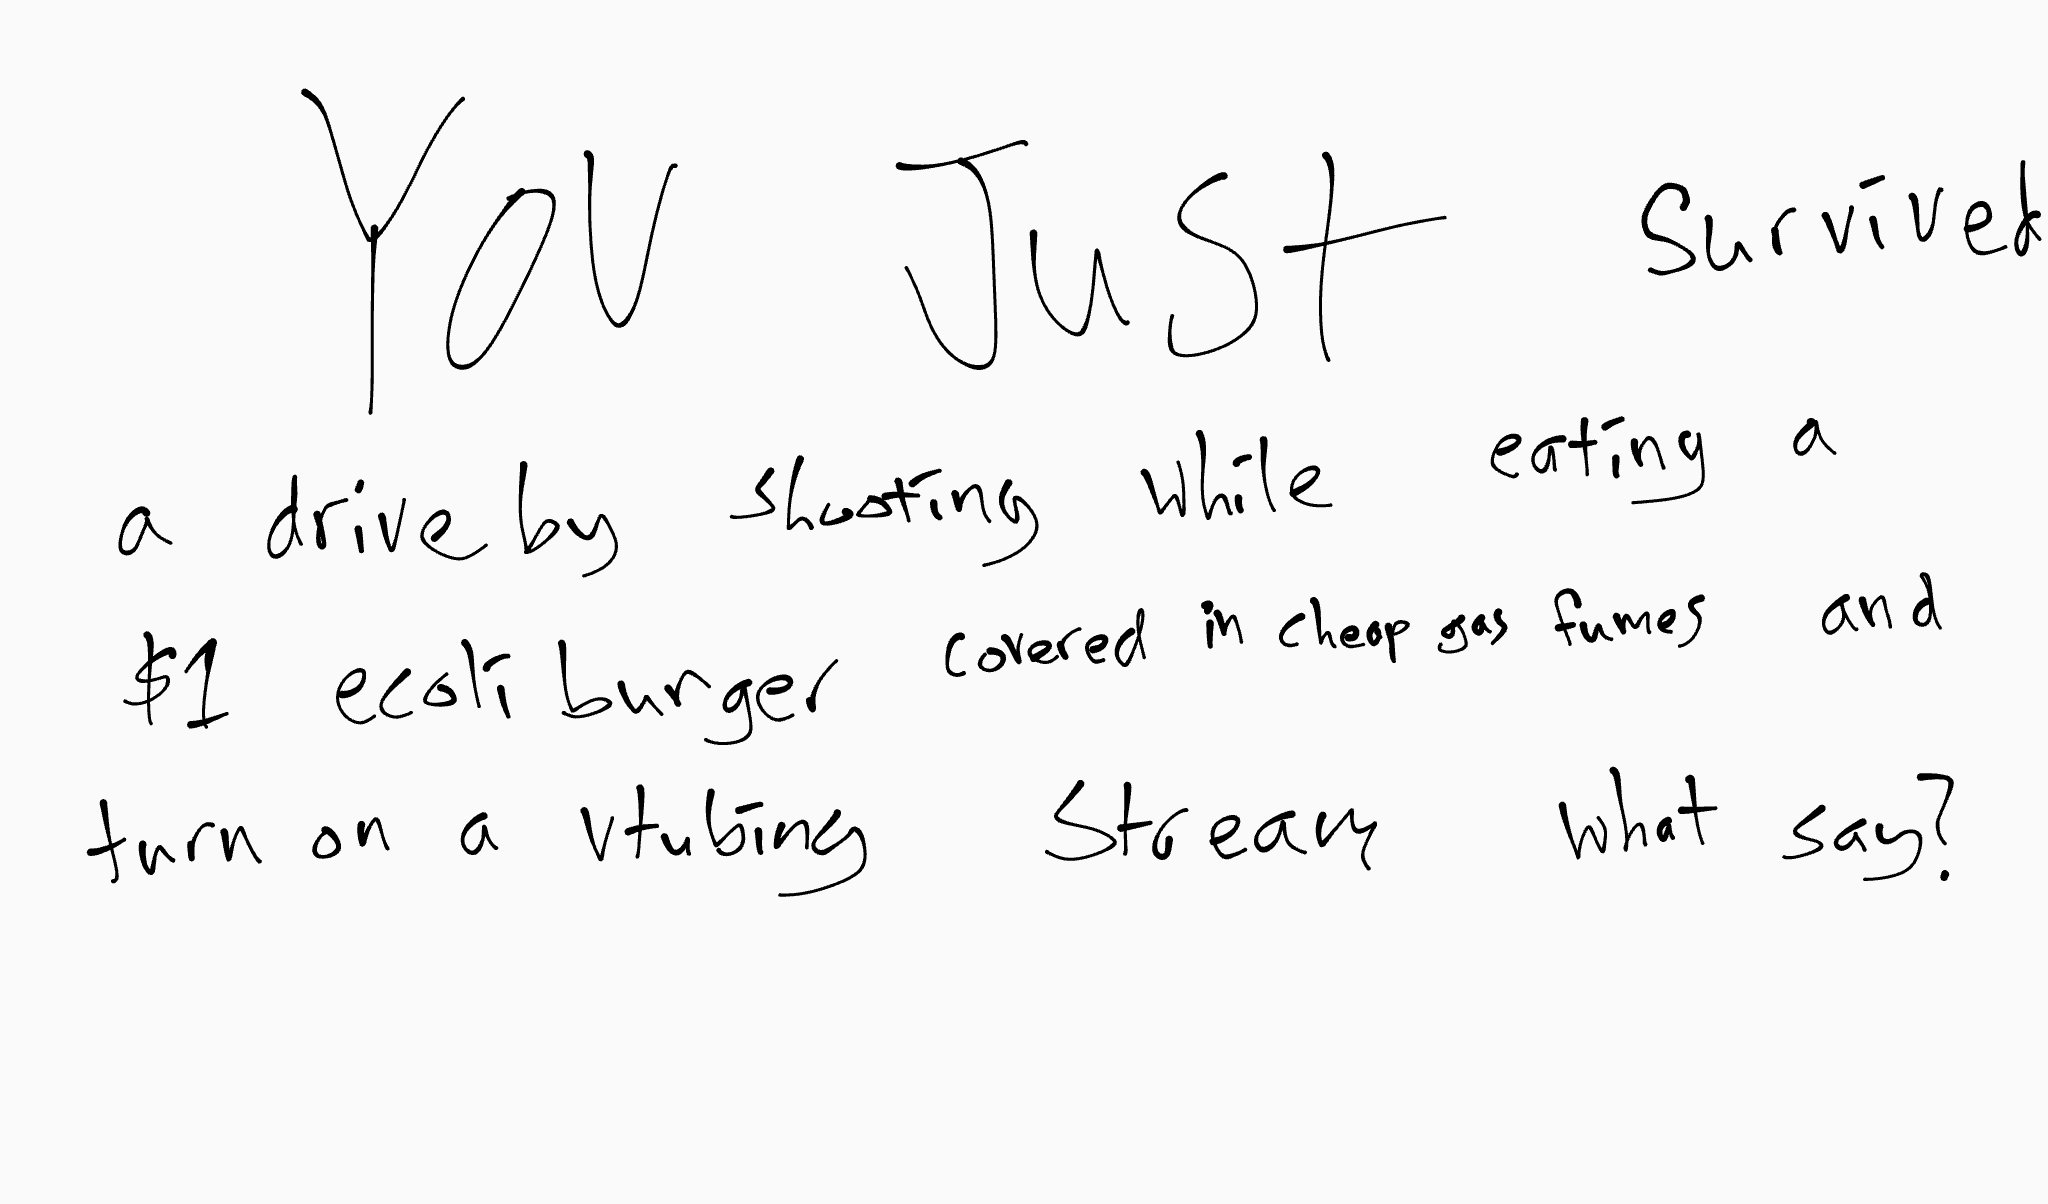 You Just Survived
a drive by shooting while eating a
$1 ecoli burger covered in cheap gas fumes and
turn on a vtubing stream what say?